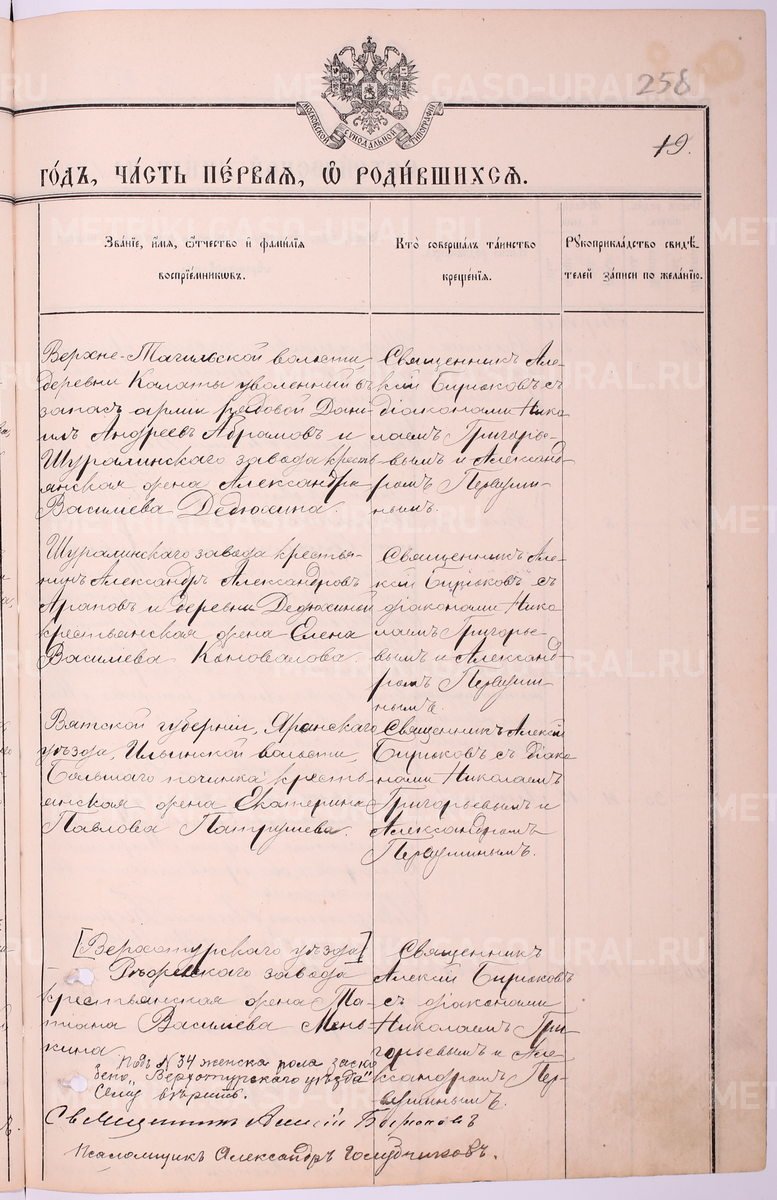 258
МОСКОВСКОЙ СУНОДАЛЬНОЙ ТИПОГРАФІИ
19.
го́дъ, ча́сть пе́рваѧ, ѡ҆ роди́вшихсѧ.
Зва́нїе, и҆́мѧ, ѻ҆́тчество и҆ фами́лїѧ
воспрїе́мникѡвъ.
Кто̀ соверша́лъ та́инство
креще́нїѧ.
Рꙋкоприкла́дство свидѣ́-
телей за́писи по жела́нїю.
Верхне-Тагильской волости
деревни Калаты уволенный въ
запасъ арміи рядовой Дани-
илъ Андреевъ Абрамовъ и
Шуралинскаго завода кресть-
янская жена Александра
Василіева Дедюхина.
Священникъ Але-
ксій Бирюковъ съ
діаконами Нико-
лаемъ Григорье-
вымъ и Александ-
ромъ Первуши-
нымъ.
Шуралинскаго завода крестья-
нинъ Александръ Александровъ
Араповъ и деревни Дедюхиной
крестьянская жена Елена
Василіева Коновалова.
Священникъ Але-
ксій Бирюковъ съ
діаконами Нико-
лаемъ Григорье-
вымъ и Александ-
ромъ Первуши-
нымъ.
Вятской губерніи, Яранскаго
уѣзда, Ильинской волости,
Большаго починка кресть-
янская жена Екатерина
Павлова Патрушева.
Священникъ Алексій
Бирюковъ съ діако-
нами Николаемъ
Григорьевымъ и
Александромъ
Первушинымъ.
[Верхотурскаго уѣзда]
завода
крестьянская жена Та-
тіана Василіева Мень-
кина
Священникъ
Алексій Бирюковъ
съ діаконами
Николаемъ Гри-
горьевымъ и Але-
ксандромъ Пер-
вушинымъ.
Подъ № 34 женска пола заско-
блено „Верхотурскаго уѣзда“
Сему вѣрить.
Священникъ Алексій Бирюковъ
Псаломщикъ Александръ Голубчиковъ.
METRIKI.GASO-URAL.RU